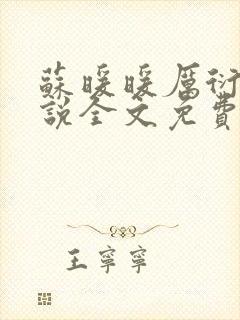 蘇暖暖厲衍
說全文免費
王寧寧